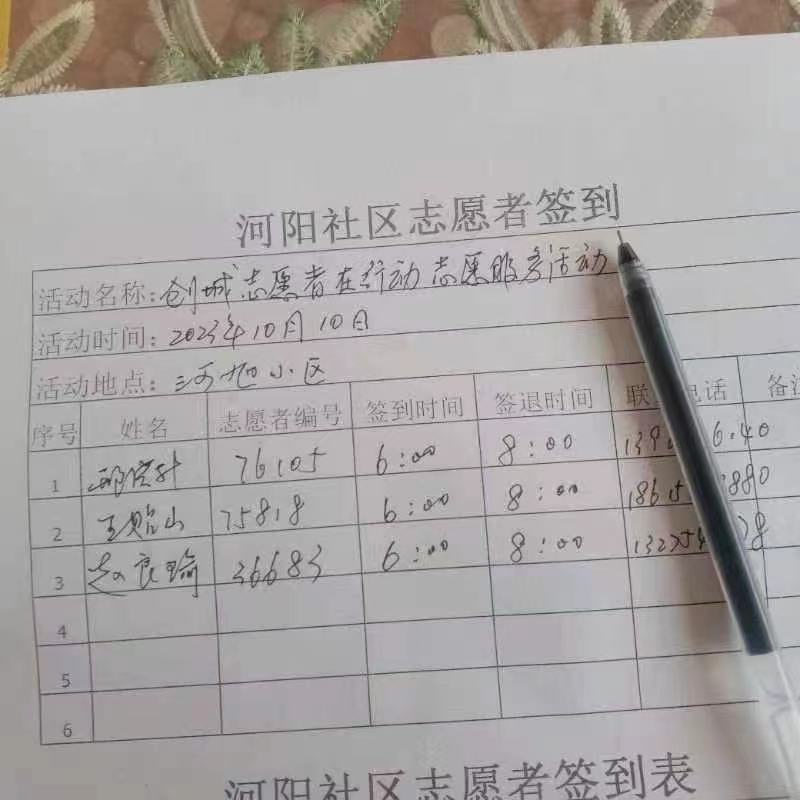 河阳社区志愿者签到
活动名称:创城志愿者在行动志愿服务活动
活动时间:2023年10月10日
活动地点:河旭小区
序号 姓名 志愿者编号 签到时间 签退时间 联 电话 备注
1 76105 6:00 8:00
2 王贻山 75818 6:00 8:00
3 赵良瑜 36683 6:00 8:00
4
5
6
河阳社区志愿者签到表